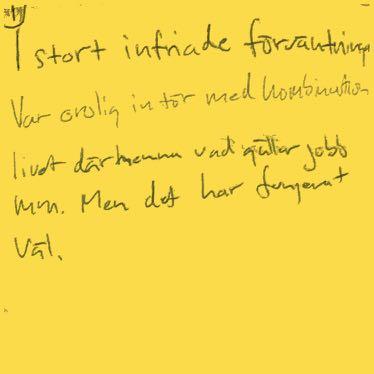 I stort infriade förväntningar
Var orolig inför med kombination
livet därhemma vad gäller jobb
mm. Men det har fungerat
väl.